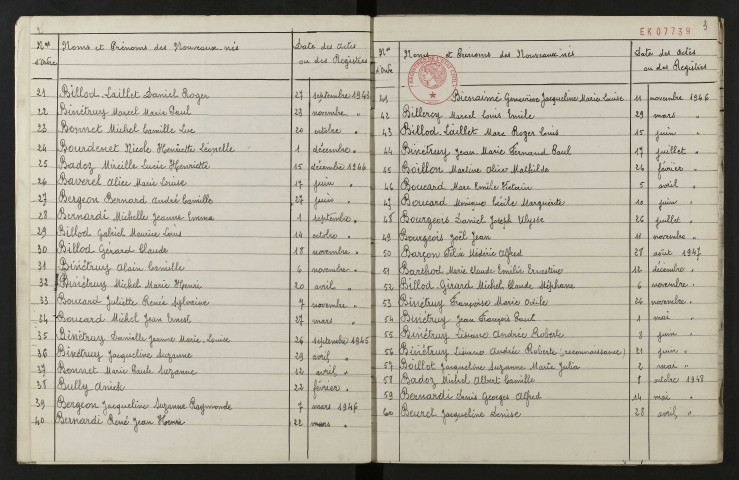 Nos d'Ordre Noms et Prénoms des Nouveaux-nés Date des Actes ou des Registres
21 Billod Laillet Daniel Roger 27 septembre 1943
22 Binétruy Marcel Marie Paul 23 novembre "
23 Bonnet Michel Camille Luc 20 octobre "
24 Bourdenet Nicole Henriette 1 décembre "
25 Badoz Mireille Lucie Henriette 15 décembre 1944
26 Baverel Alice Marie Louise 17 juin "
27 Bergeon Bernard André Camille 27 juin "
28 Bernardi Michelle Jeanne Emma 1 septembre "
29 Billod Gabriel Maurice Louis 14 octobre "
30 Billod Gérard Claude 18 novembre "
31 Binétruy Alain Camille 6 novembre "
32 Binétruy Michel Marie Henri 20 avril "
33 Boucard Juliette Renée Sylvaine 7 novembre "
34 Boucard Michel Jean Ernest 27 mars "
35 Binétruy Danielle Jeanne Marie Louise 26 septembre 1945
36 Binétruy Jacqueline Suzanne 29 avril "
37 Bonnet Marie Paule Suzanne 12 avril "
38 Bully Anick 22 février "
39 Bergeon Jacqueline Suzanne Raymonde 7 mars 1946
40 Bernardi René Jean Henri 22 mars "
EK07739
3
Nos d'Ordre Noms et Prénoms des Nouveaux-nés Date des Actes ou des Registres
41 Bienaimé Geneviève Jacqueline Marie Louise 11 novembre 1946
42 Billerey Marcel Louis Emile 29 mars "
43 Billod Laillet Marc Roger Louis 15 juin "
44 Binétruy Jean Marie Fernand Paul 17 juillet "
45 Boillon Martine Alice Mathilde 26 février "
46 Boucard Marc Emile Victorin 5 avril "
47 Boucard Monique Cécile Marguerite 10 juin "
48 Bourgeois Daniel Joseph Ulysse 26 juillet "
49 Bourgeois Joël Jean 11 novembre "
50 Barçon Félix Médéric Alfred 28 août 1947
51 Barthod Marie Claude Emilie Ernestine 12 décembre "
52 Billod Girard Michel Claude Stéphane 6 novembre "
53 Binétruy Françoise Marie Odile 26 novembre "
54 Binétruy Jean François Paul 1 mai "
55 Binétruy Liliane Andrée Roberte 8 juin "
56 Binétruy Liliane Andrée Roberte (reconnaissance) 21 juin "
57 Boillot Jacqueline Suzanne Marie Julia 2 mai "
58 Badoz Michel Albert Camille 8 octobre 1948
59 Bernardi Denis Georges Alfred 14 mai "
60 Beurel Jacqueline Denise 28 avril "